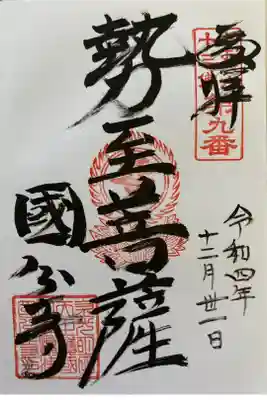 奉拝
九番
令和四年
十二月廿一日
勢至菩薩
國分寺